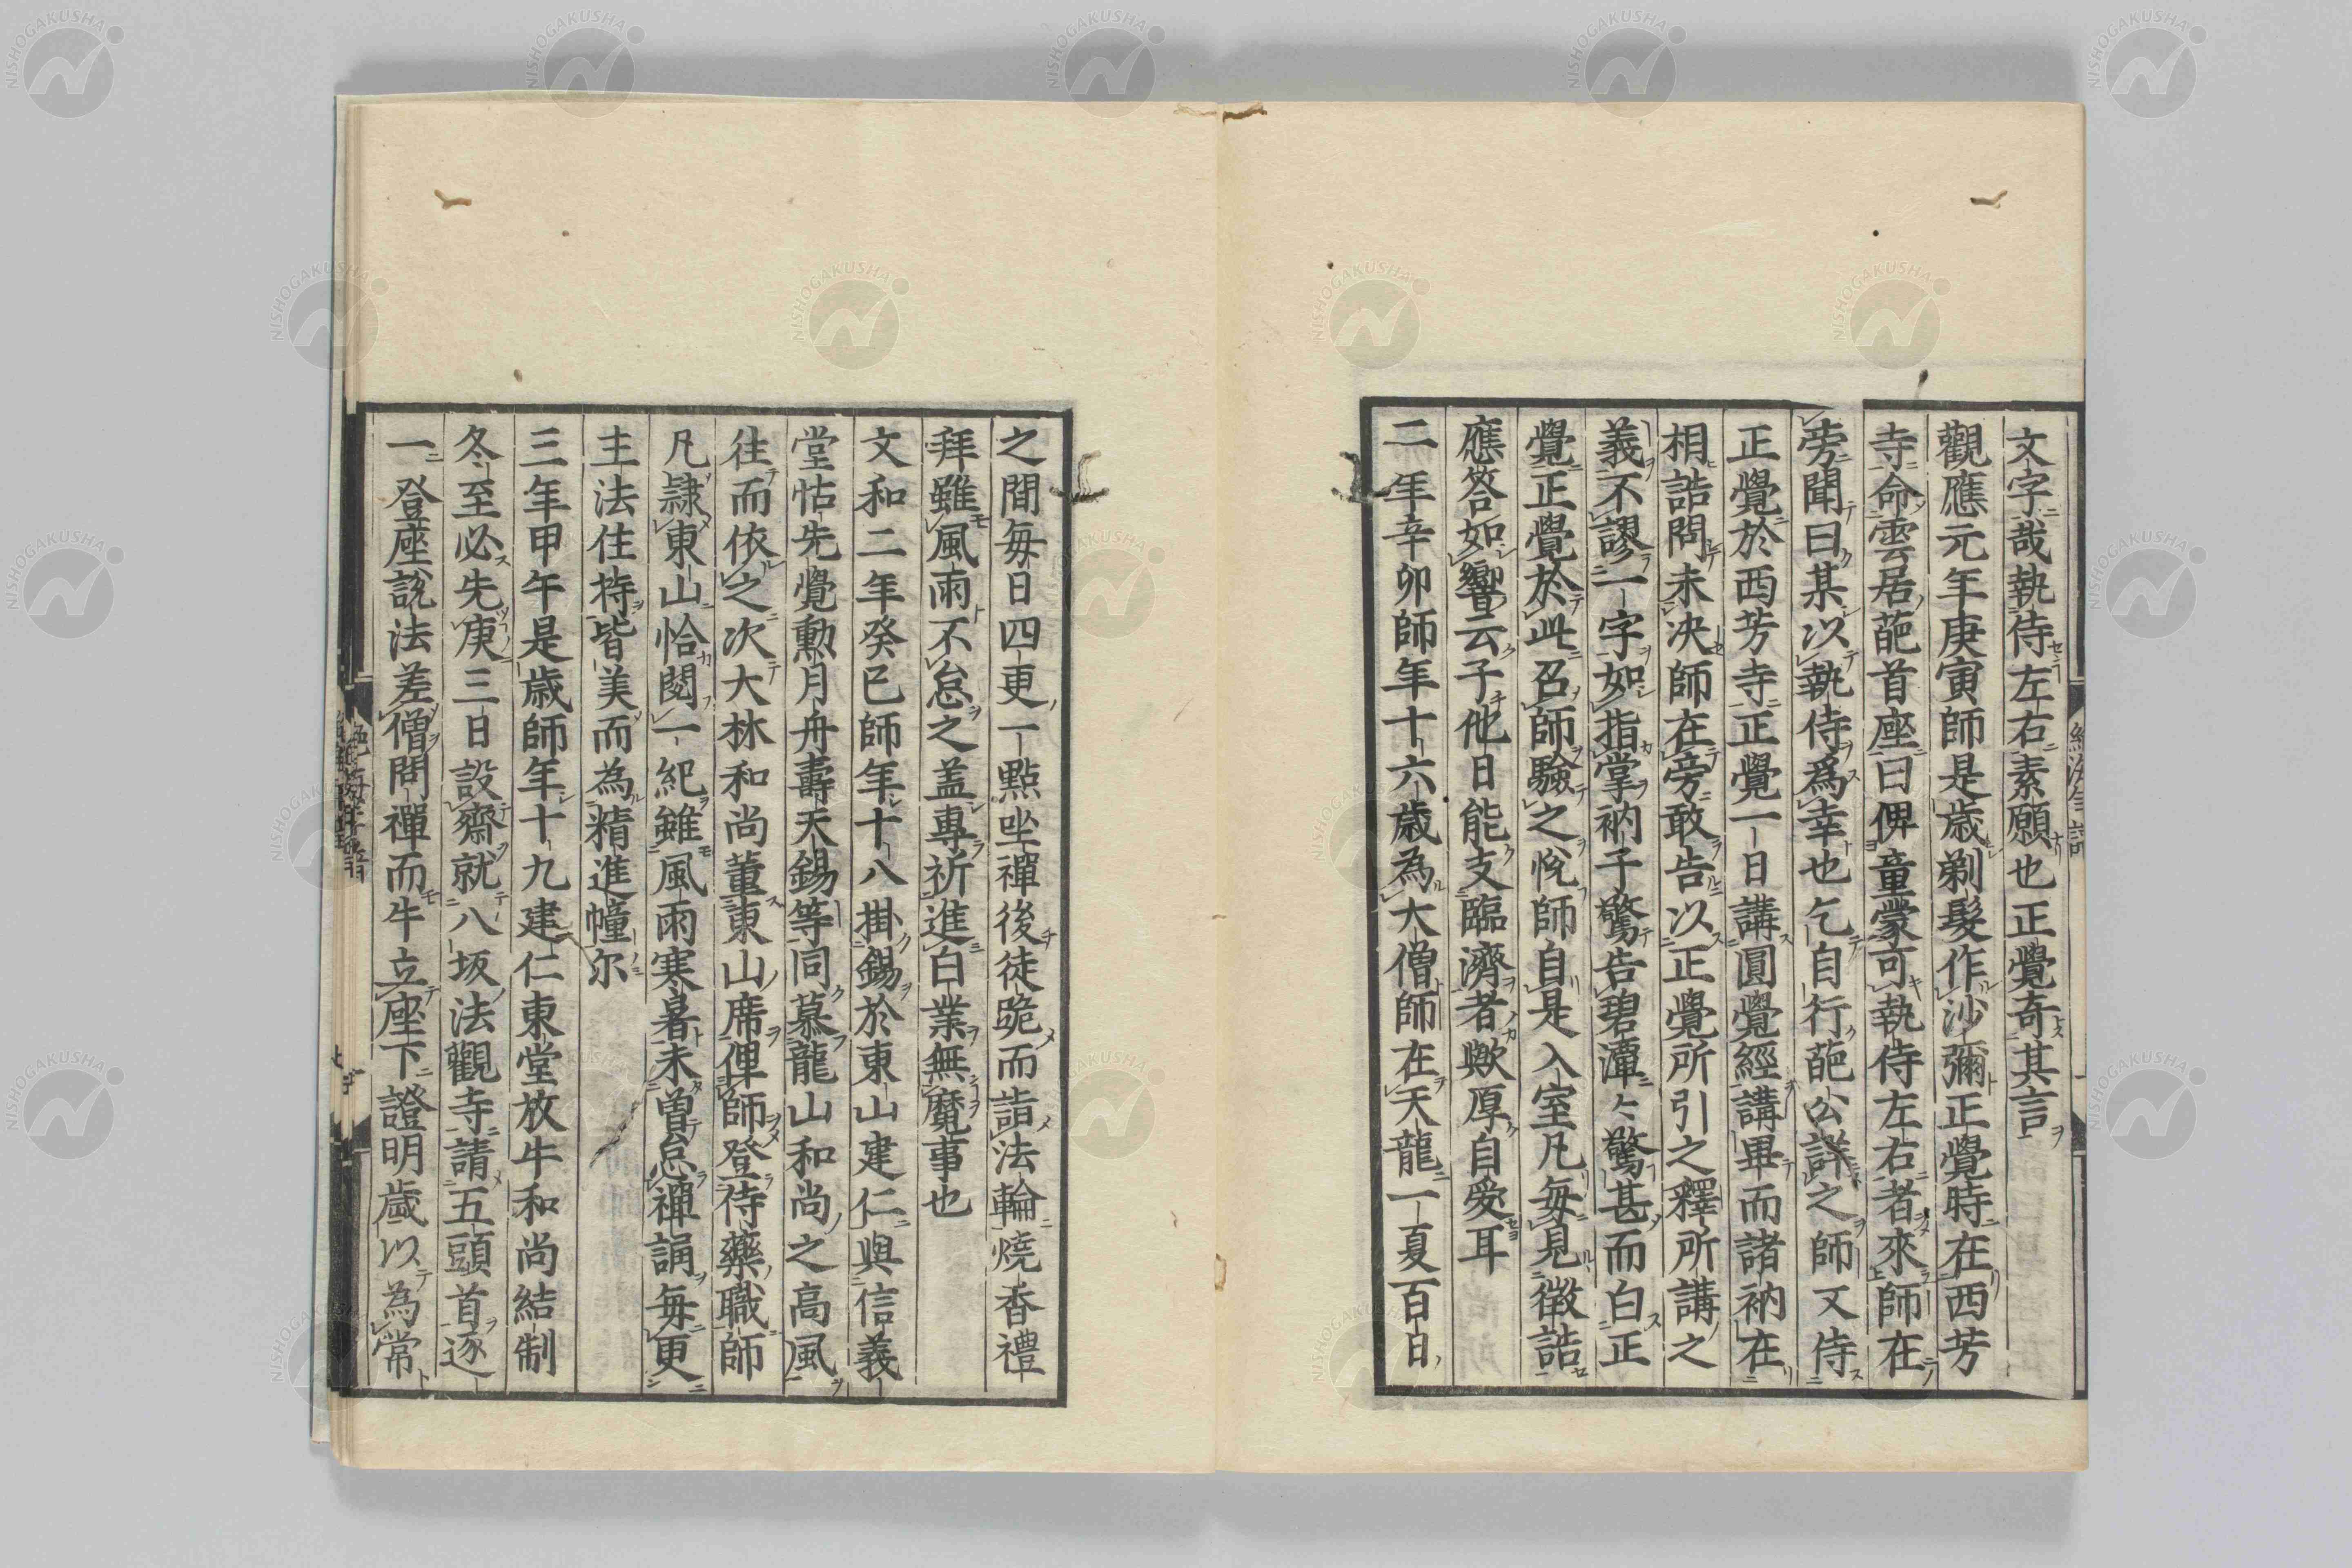 文字哉執侍左右素願也正覺奇其言
觀應元年庚寅師是歲剃髮作沙彌正覺時在西芳
寺命雲居葩首座曰俾童蒙可執侍左右者來師在
旁聞曰某以執侍爲幸也乞自行葩公詳之師又侍
正覺於西芳寺正覺一日講圓覺經講畢而諸衲在
相詰問未决師在旁敢告以正覺所引之釋所講之
義不謬一字如指掌衲子驚告碧潭々驚甚而白正
覺正覺於此召師驗之悅師自是入室凡每見徵詰
應答如響云子他日能支臨濟者歟厚自愛耳
二年辛卯師年十六歲為大僧師在天龍一夏百日
之間每日四更一點坐禪後徒跪而詣法輪燒香禮
拜雖風雨不怠之盖專祈進白業無魔事也
文和二年癸巳師年十八掛錫於東山建仁與信義
堂怙先覺勲月舟壽天錫等同慕龍山和尚之高風
往而依之次大林和尚董東山席俾師登侍藥職師
凡隷東山恰閱一紀雖風雨寒暑未曾怠禪誦每更
主法住持皆美而為精進幢尔
三年甲午是歲師年十九建仁東堂放牛和尚結制
冬至必先庚三日設齋就八坂法觀寺請五頭首逐
一登座說法差僧問禪而牛立座下證明歲以為常
NISHOGAKUSHA